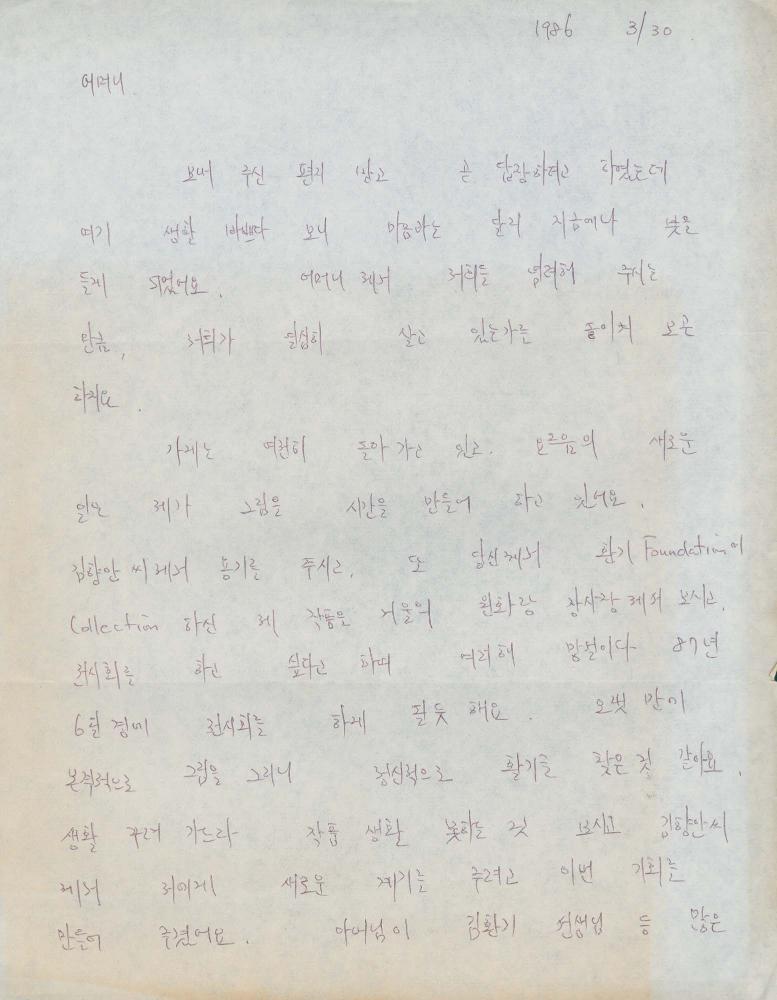 1986 3/30
어머니
보내 주신 편지 받고 곧 답장하려고 하였는데
여기 생활 바쁘다 보니 마음과는 달리 지금에나 붓을
들게 되었어요. 어머니께서 저희들 염려해 주시는
만큼, 저희가 열심히 살고 있는가를 돌이켜 보곤
하지요.
가게는 여전히 돌아가고 있고, 요즈음의 새로운
일은 제가 그림을 시간을 만들어 하고 있어요.
김향안씨께서 용기를 주시고, 또 당신께서 환기 Foundation에
Collection 하신 제 작품은 서울의 원화랑 장사장께서 보시고,
전시회를 하고 싶다고 하며 여러해 망설이다 87년
6월경에 전시회를 하게 될듯 해요. 오랫 만에
본격적으로 그림을 그리니 정신적으로 활기를 찾은 것 같아요.
생활 꾸려 가느라 작품 생활 못하는 것 보시고 김향안씨
께서 저에게 새로운 계기를 주려고 이번 기회를
만들어 주셨어요. 아버님이 김환기 선생님 등 많은